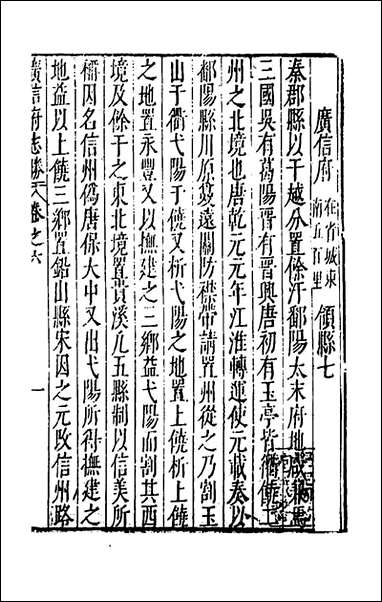 廣信府 在省城東南五百里 領縣七
秦郡縣以干越分置餘汗鄱陽太末府地咸
三國吳有葛陽晉有晉興唐初有玉亭皆衢饒二
州之北境也唐乾元元年江淮轉運使元載奏以
鄱陽縣川原敻遠關防襟帶請置州從之乃割玉
山于衢弋陽于饒又析弋陽之地置上饒析上饒
之地置永豐又以撫建之二鄉益弋陽而割其西
境及餘干之東北境置貴溪凡五縣制以信美所
稱因名信州僞唐保大中又出弋陽所得撫建之
地益以上饒三鄉置鉛山縣宋因之元改信州路
廣信府志勝 卷之六 一